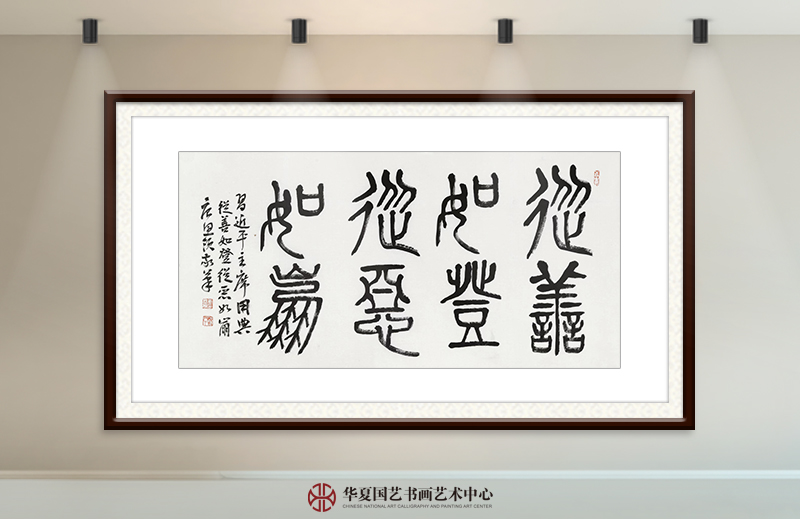 從譱
如登
從惡
如崩
習近平主席用典
從善如登從惡如崩
华夏国艺书画艺术中心
CHINESE NATIONAL ART CALLIGRAPHY AND PAINTING ART CENTER